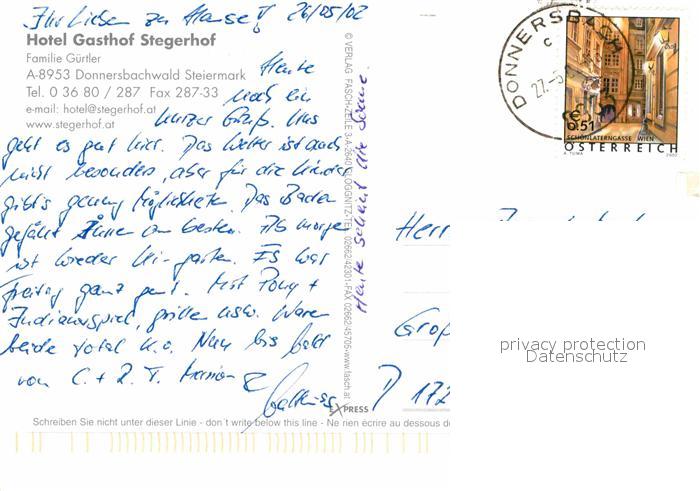 Ihr Lieben zu Hause! 26/05/02
Hotel Gasthof Stegerhof
Familie Gürtler
A-8953 Donnersbachwald Steiermark
Tel. 0 36 80 / 287 Fax 287-33
e-mail: hotel@stegerhof.at
www.stegerhof.at
Heute
noch ein
kurzer Gruß. Uns
geht es gut hier. Das Wetter ist auch
nicht besonders, aber für die Kinder
gibt's genug Möglichkeiten. Das Baden
gefällt Ihnen am besten. Ab morgen
ist wieder Kindergarten. Es war
Freitag ganz gut. Mit Pony +
Indianerspiel, grillen usw. Waren
beide total k.o. Nun bis bald
von C. + R. T.
Heute scheint die Sonne.
© VERLAG FASCHING
02662/42301-FAX 02662/45705-www.fasch.at
EXPRESS
Schreiben Sie nicht unter dieser Linie - don't write below this line - Ne rien écrire au dessous de
DONNERSBACH
c
27.-5.
€ 0,51
SCHÖNLATERNGASSE WIEN
ÖSTERREICH
A. TUMA 2002
Herr
Groß
D 172
privacy protection
Datenschutz